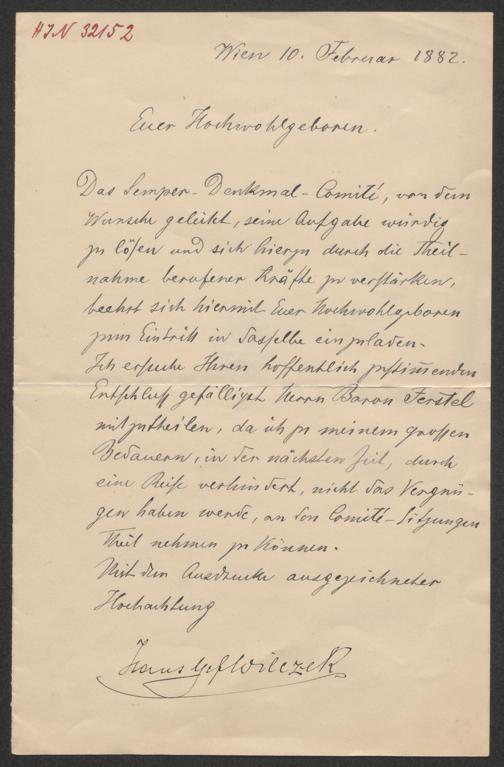 HIN 32152
Wien 10. Februar 1882.
Euer Hochwohlgeboren.
Das Semper-Denkmal-Comité, von dem
Wunsche geleitet, seine Aufgabe würdig
zu lösen und sich hierzu durch die Theil-
nahme berufener Kräfte zu verstärken,
beehrt sich hiermit Euer Hochwohlgeboren
zum Eintritt in dasselbe einzuladen.
Ich ersuche Ihren hoffentlich zustim̄enden
Entschluss gefälligst Herrn Baron Ferstel
mitzutheilen, da ich zu meinem grossen
Bedauern, in der nächsten Zeit, durch
eine Reise verhindert, nicht das Vergnü-
gen haben werde, an den Comité-Sitzungen
Theil nehmen zu können.
Mit dem Ausdrucke ausgezeichneter
Hochachtung
Hans Gf Wilczek